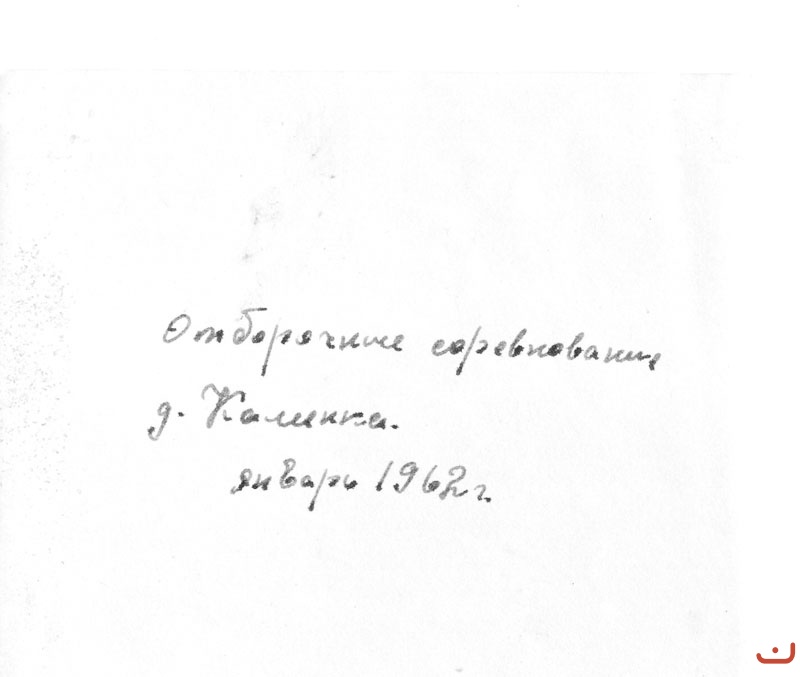 Отборочные соревнования
д. Калинка.
январь 1962 г.